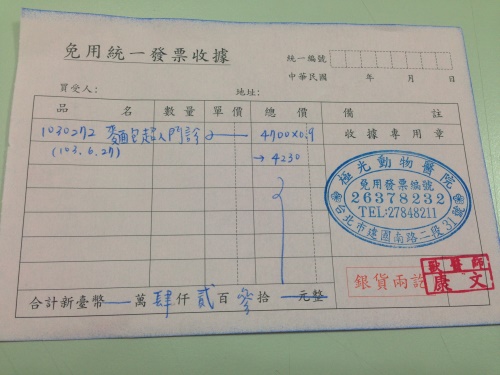 免用統一發票收據
統一編號
中華民國 年 月 日
買受人： 地址：
品 名 數量 單價 總價 備 註
1030272 麵包超人門診 4700x0.9 收據專用章
(103.6.27) → 4230
極光動物醫院
免用發票編號
26378232
TEL:27848211
台北市建國南路二段31號
銀貨兩訖
獸醫師
康文
合計新臺幣 萬肆仟貳百參拾 元整